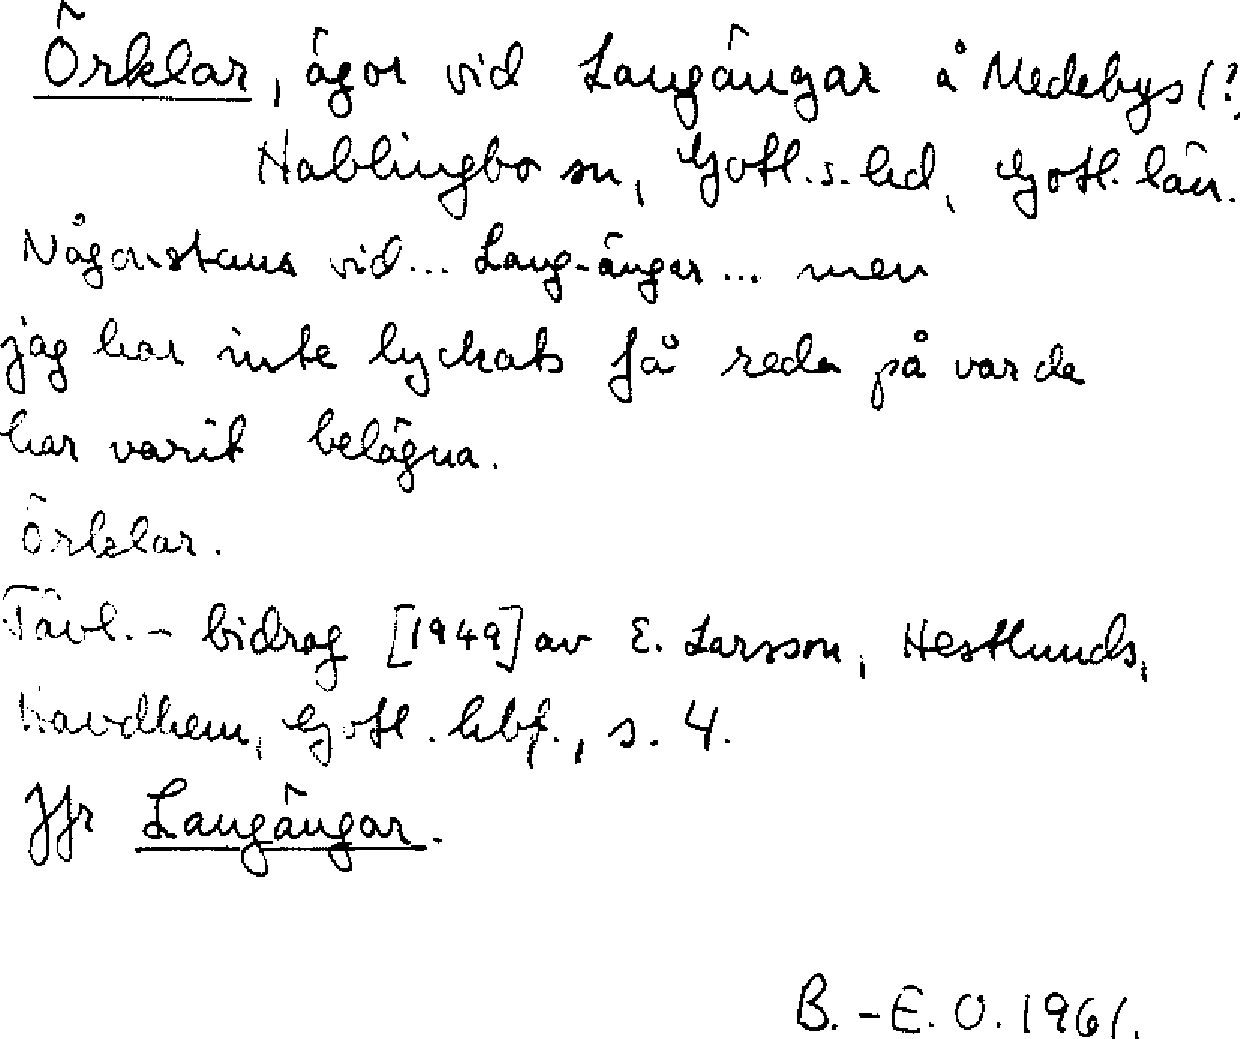 Örklar, ägor vid Langängar å Medebys (?,
Hablingbo sn, Gotl. s. hd, Gotl. län.
Någonstans vid... Lang-ängar... men
jag har inte lyckats få reda på var de
har varit belägna.
Örklar.
Tävl. - bidrag [1949] av E. Larsson, Hestlunds,
Havdhem, Gotl. hbf., s. 4.
Jfr Langängar.
B. - E. O. 1961.